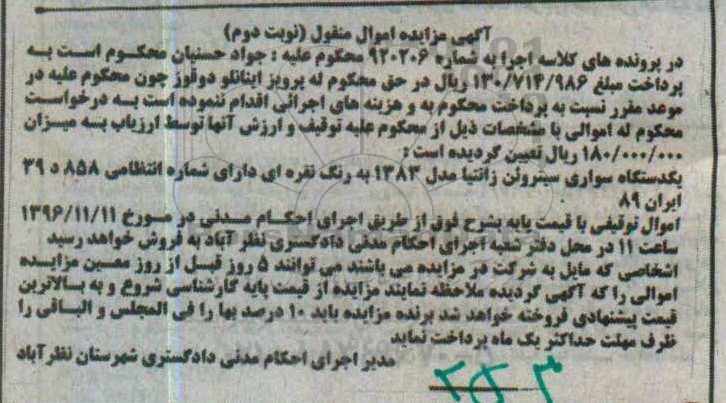 آگهی مزایده اموال منقول (نوبت دوم)
در پرونده های کلاسه اجرا به شماره ۹۲۰۲۰۶ محکوم علیه : جواد حسنیان محکوم است به
پرداخت مبلغ ۱۳۰/۷۱۴/۹۸۶ ریال در حق محکوم له پرویز اینانلو دوقوز چون محکوم علیه در
موعد مقرر نسبت به پرداخت محکوم به و هزینه های اجرائی اقدام ننموده است به درخواست
محکوم له اموالی با مشخصات ذیل از محکوم علیه توقیف و ارزش آنها توسط ارزیاب به میزان
۱۸۰/۰۰۰/۰۰۰ ریال تعیین گردیده است :
یکدستگاه سواری سیتروئن زانتیا مدل ۱۳۸۳ به رنگ نقره ای دارای شماره انتظامی ۸۵۸ د ۳۹
ایران ۸۹
اموال توقیفی با قیمت پایه بشرح فوق از طریق اجرای احکام مدنی در مورخ ۱۳۹۶/۱۱/۱۱
ساعت ۱۱ در محل دفتر شعبه اجرای احکام مدنی دادگستری نظر آباد به فروش خواهد رسید
اشخاصی که مایل به شرکت در مزایده می باشند می توانند ۵ روز قبل از روز معین مزایده
اموالی را که آگهی گردیده ملاحظه نمایند مزایده از قیمت پایه کارشناسی شروع و به بالاترین
قیمت پیشنهادی فروخته خواهد شد برنده مزایده باید ۱۰ درصد بها را فی المجلس و الباقی را
ظرف مهلت حداکثر یک ماه پرداخت نماید
مدیر اجرای احکام مدنی دادگستری شهرستان نظرآباد